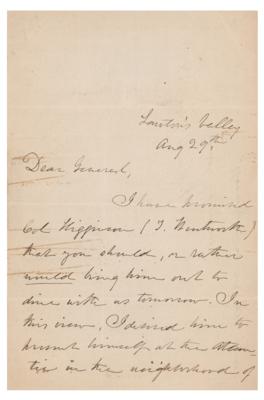 Lawton's Valley
Aug 29th
Dear General,
I have promised
Col Higginson (T. Wentworth)
that you should, or rather
would bring him out to
dine with us tomorrow. In
this view, I desired him to
present himself at the Atlan-
tic in the neighborhood of